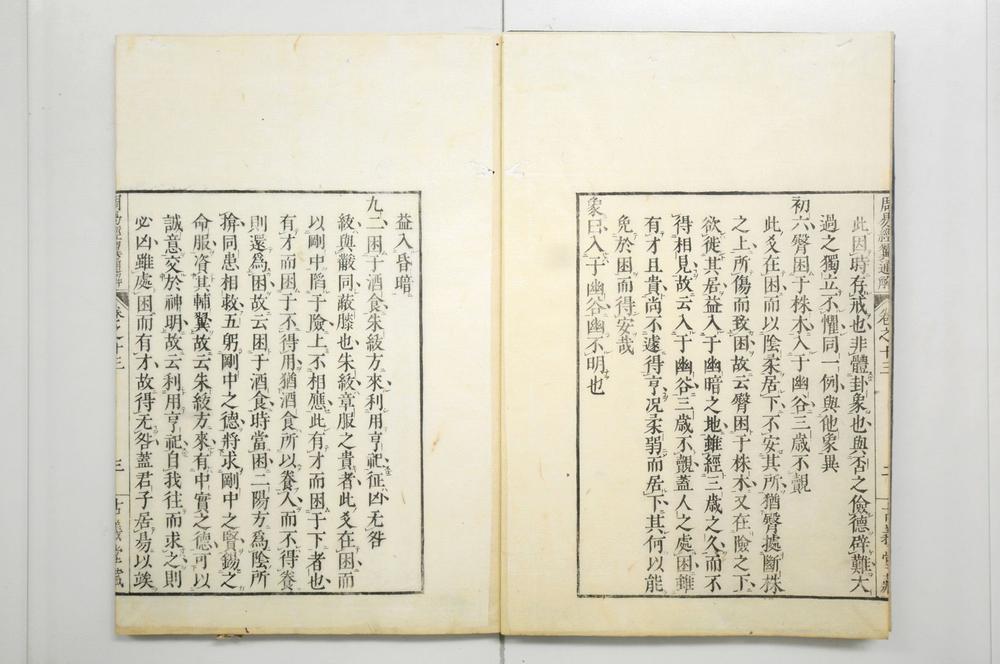 周易經翼通解 卷之十三 二 古義堂藏
此因時存戒也非體卦象也與否之儉德辟難大
過之獨立不懼同一例與他象異
初六臀困于株木入于幽谷三歲不覿
此爻在困而以陰柔居下不安其所猶臀據斷株
之上所傷而致困故云臀困于株木又在險之下
欲徙其居益入于幽暗之地雖經三歲之久而不
得相見故云入于幽谷三歲不覿蓋人之處困雖
有才且貴尚不遽得亨况柔弱而居下其何以能
免於困而得安哉
象曰入于幽谷幽不明也
益入昏暗
九二困于酒食朱紱方來利用亨祀征凶无咎
紱與黻同蔽膝也朱紱章服之貴者此爻在困而
以剛中陷于險上不相應此有才而困于下者也
有才而困于不得用猶酒食所以養人而不得養
則還爲困故云困于酒食時當困二陽方爲陰所
揜同患相救五躬剛中之德將求剛中之賢錫之
命服資其輔翼故云朱紱方來有中實之德可以
誠意交於神明故云利用亨祀自我往而求之則
必凶雖處困而有才故得无咎蓋君子居易以竢
周易經翼通解 卷之十三 三 古義堂藏